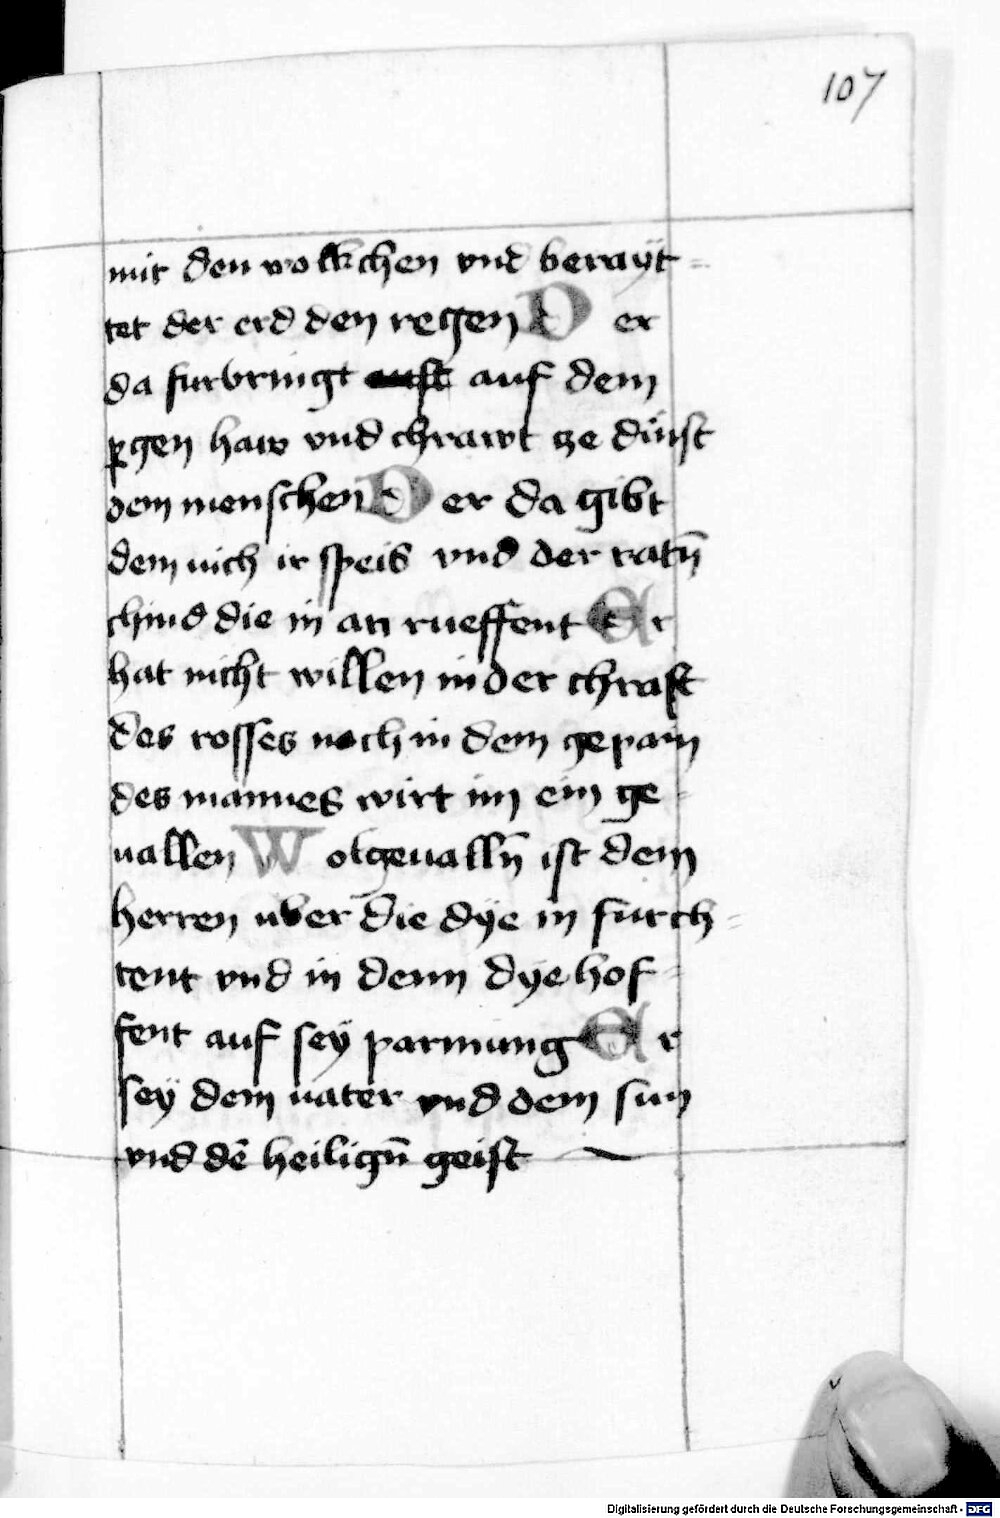 107
mit den wolkchen vnd berayt=
tet der erd den regen Der
da furbringt auf dem
pergen haw vnd chrawt ze dinst
dem menschen Der da gibt
dem vich ir speis vnd der ratn̄
chind die in an rueffent Er
hat nicht willen in der chraft
des rosses noch in dem gepain
des mannes wirt im ein ge=
uallen Wolgeualln̄ ist dem
herren uber die dÿe in furch=
tent vnd in denn dÿe hof=
fent auf seÿ parmung Er
seÿ dem uater vnd dem sun
vnd dē heilign̄ geist
Digitalisierung gefördert durch die Deutsche Forschungsgemeinschaft - DFG